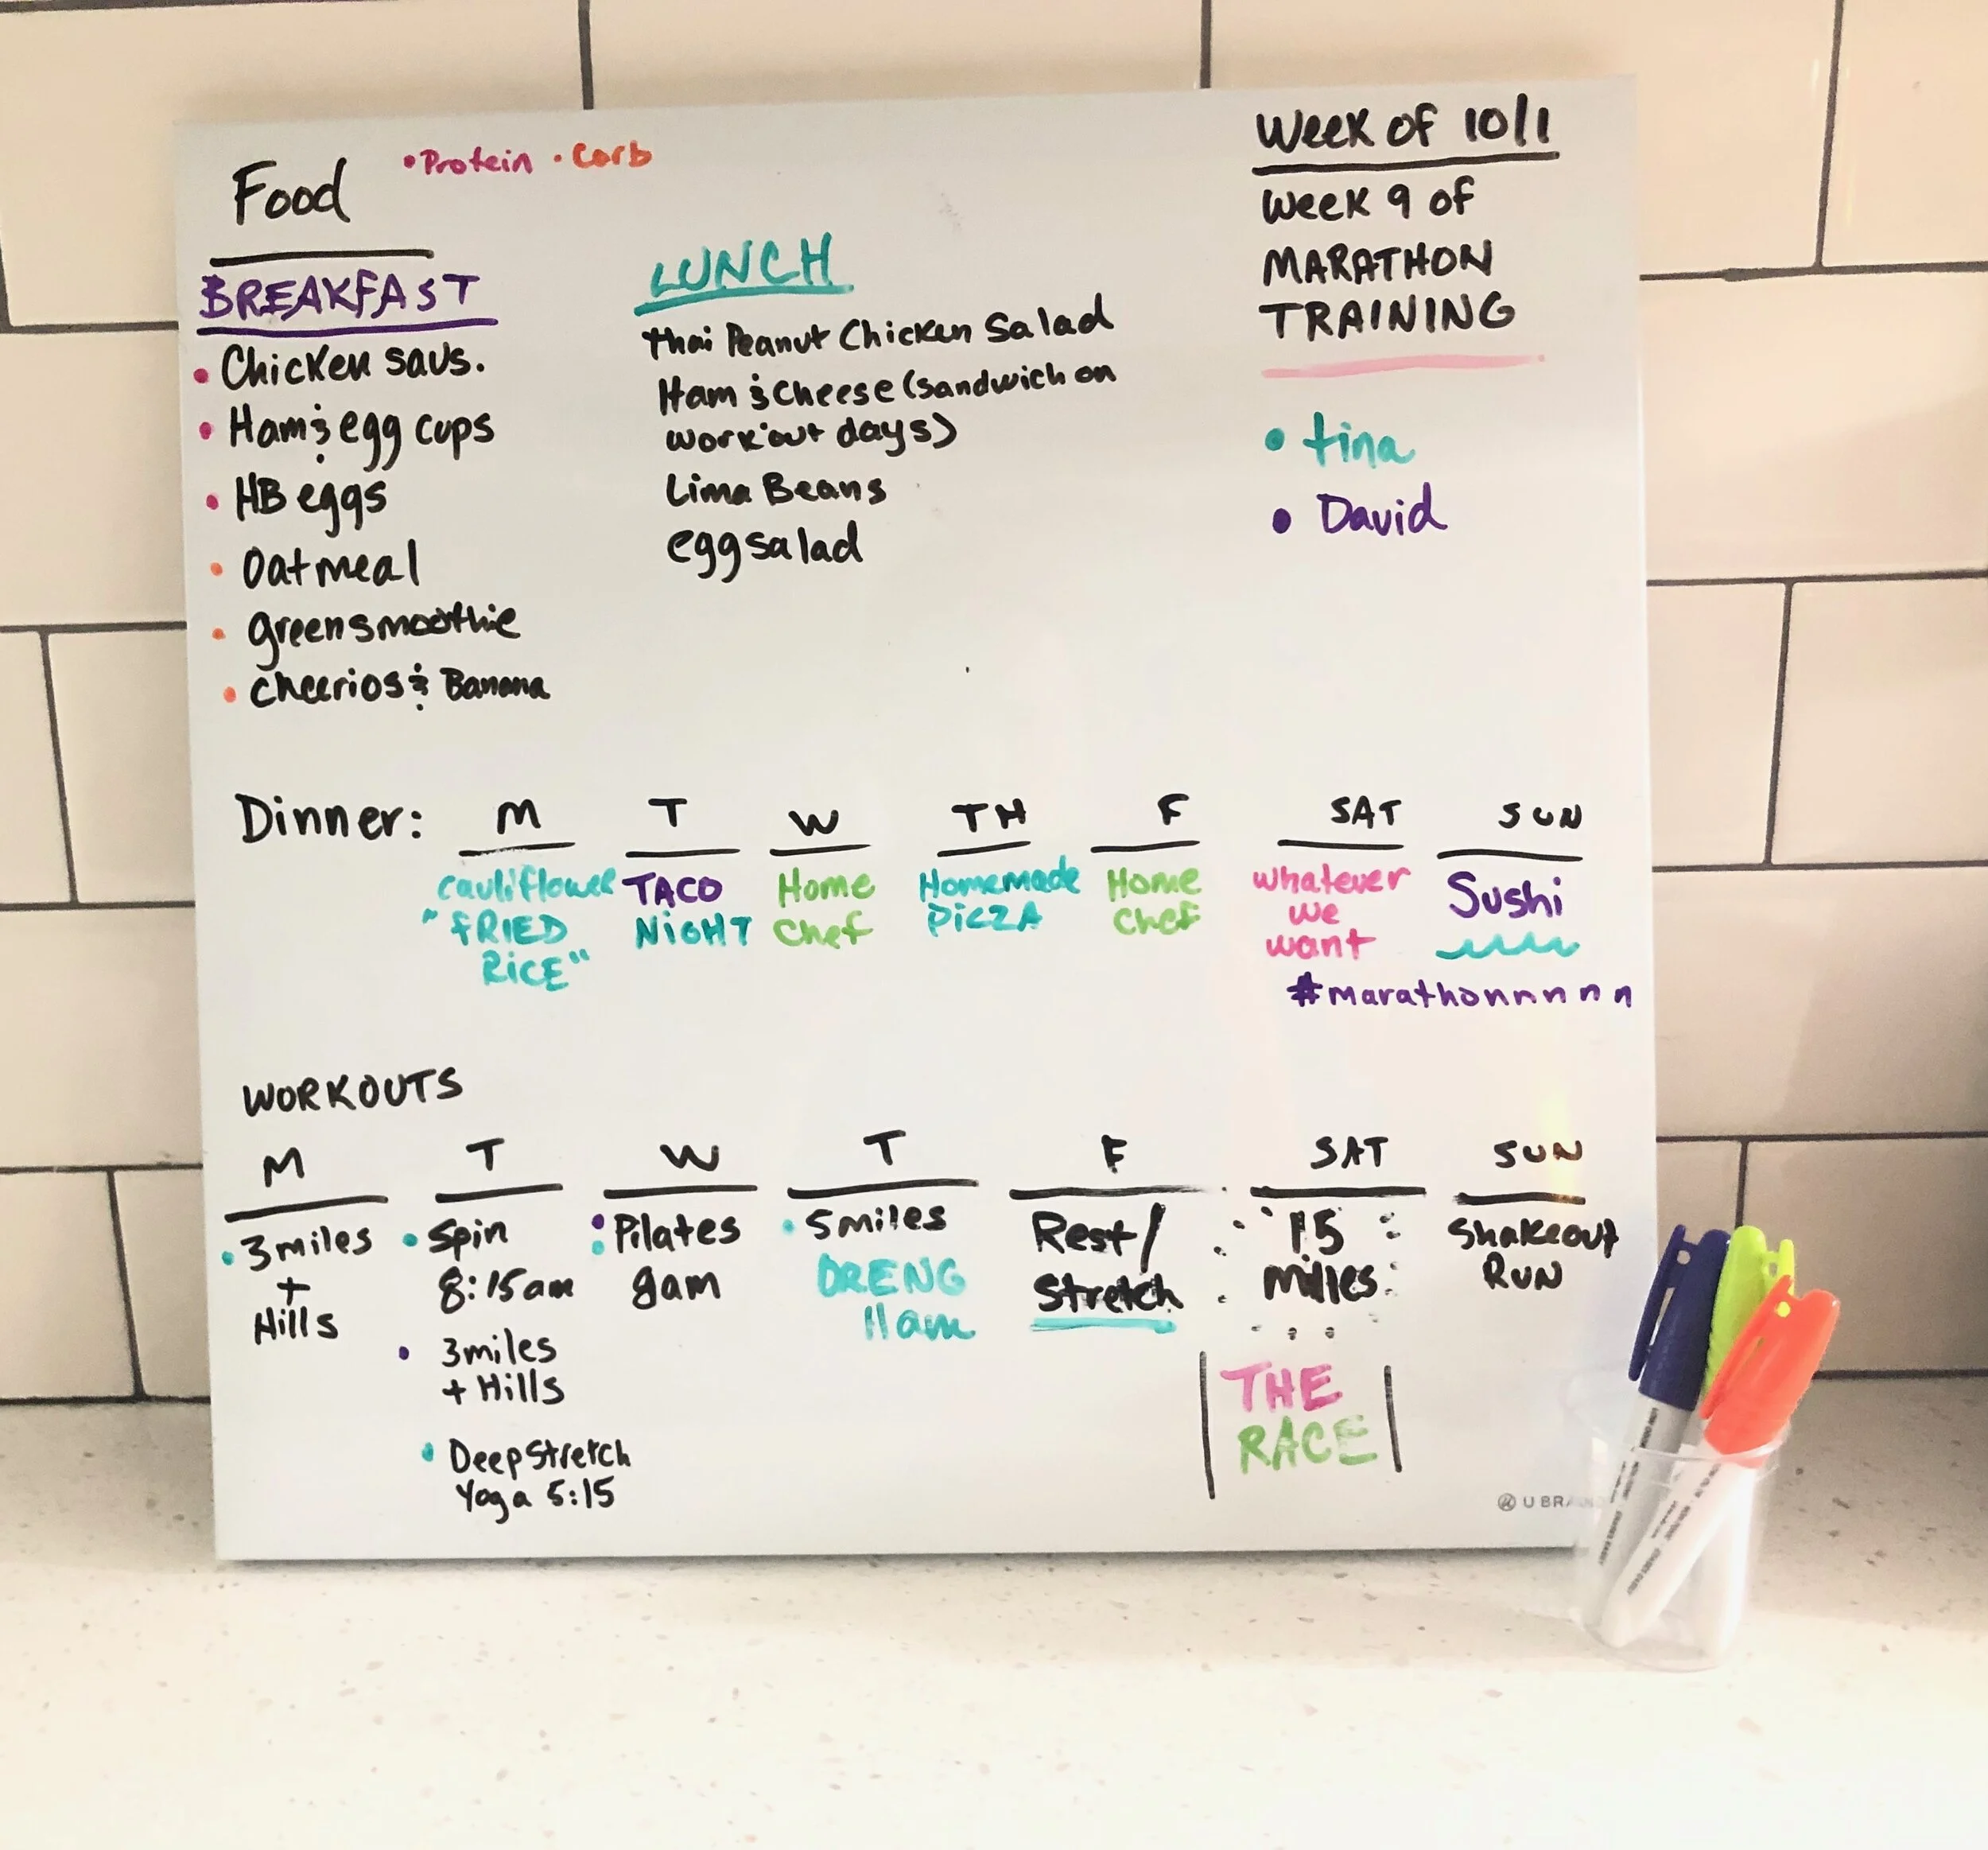 Food
•Protein •Carb
Week of 10/1
Week 9 of
MARATHON
TRAINING
• tina
• David
BREAKFAST
• Chicken saus.
• Ham & egg cups
• HB eggs
• Oatmeal
• green smoothie
• cheerios & Banana
LUNCH
thai Peanut Chicken Salad
Ham & Cheese (sandwich on
workout days)
Lima Beans
egg salad
Dinner: M T W TH F SAT SUN
cauliflower
"FRIED
RICE"
TACO
NIGHT
Home
Chef
Homemade
PIZZA
Home
Chef
whatever
we
want
Sushi
#marathonnnnn
WORKOUTS
M T W T F SAT SUN
• 3 miles
+
Hills
• Spin
8:15am
• 3 miles
+ Hills
• Deep Stretch
Yoga 5:15
• Pilates
9am
• 5 miles
11am
Rest/
Stretch
15
miles
THE
RACE
Shakeout
RUN
U BRA